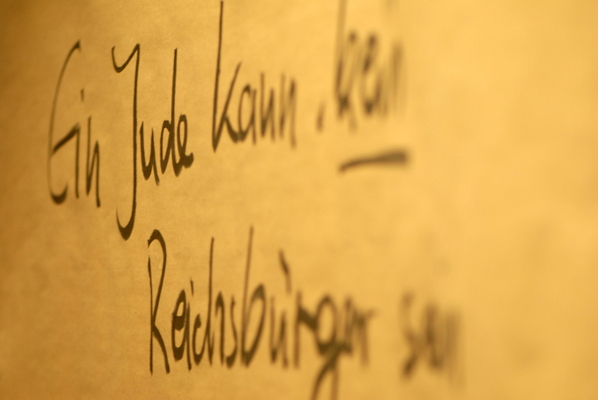 Ein Jude kann kein
Reichsbürger sein